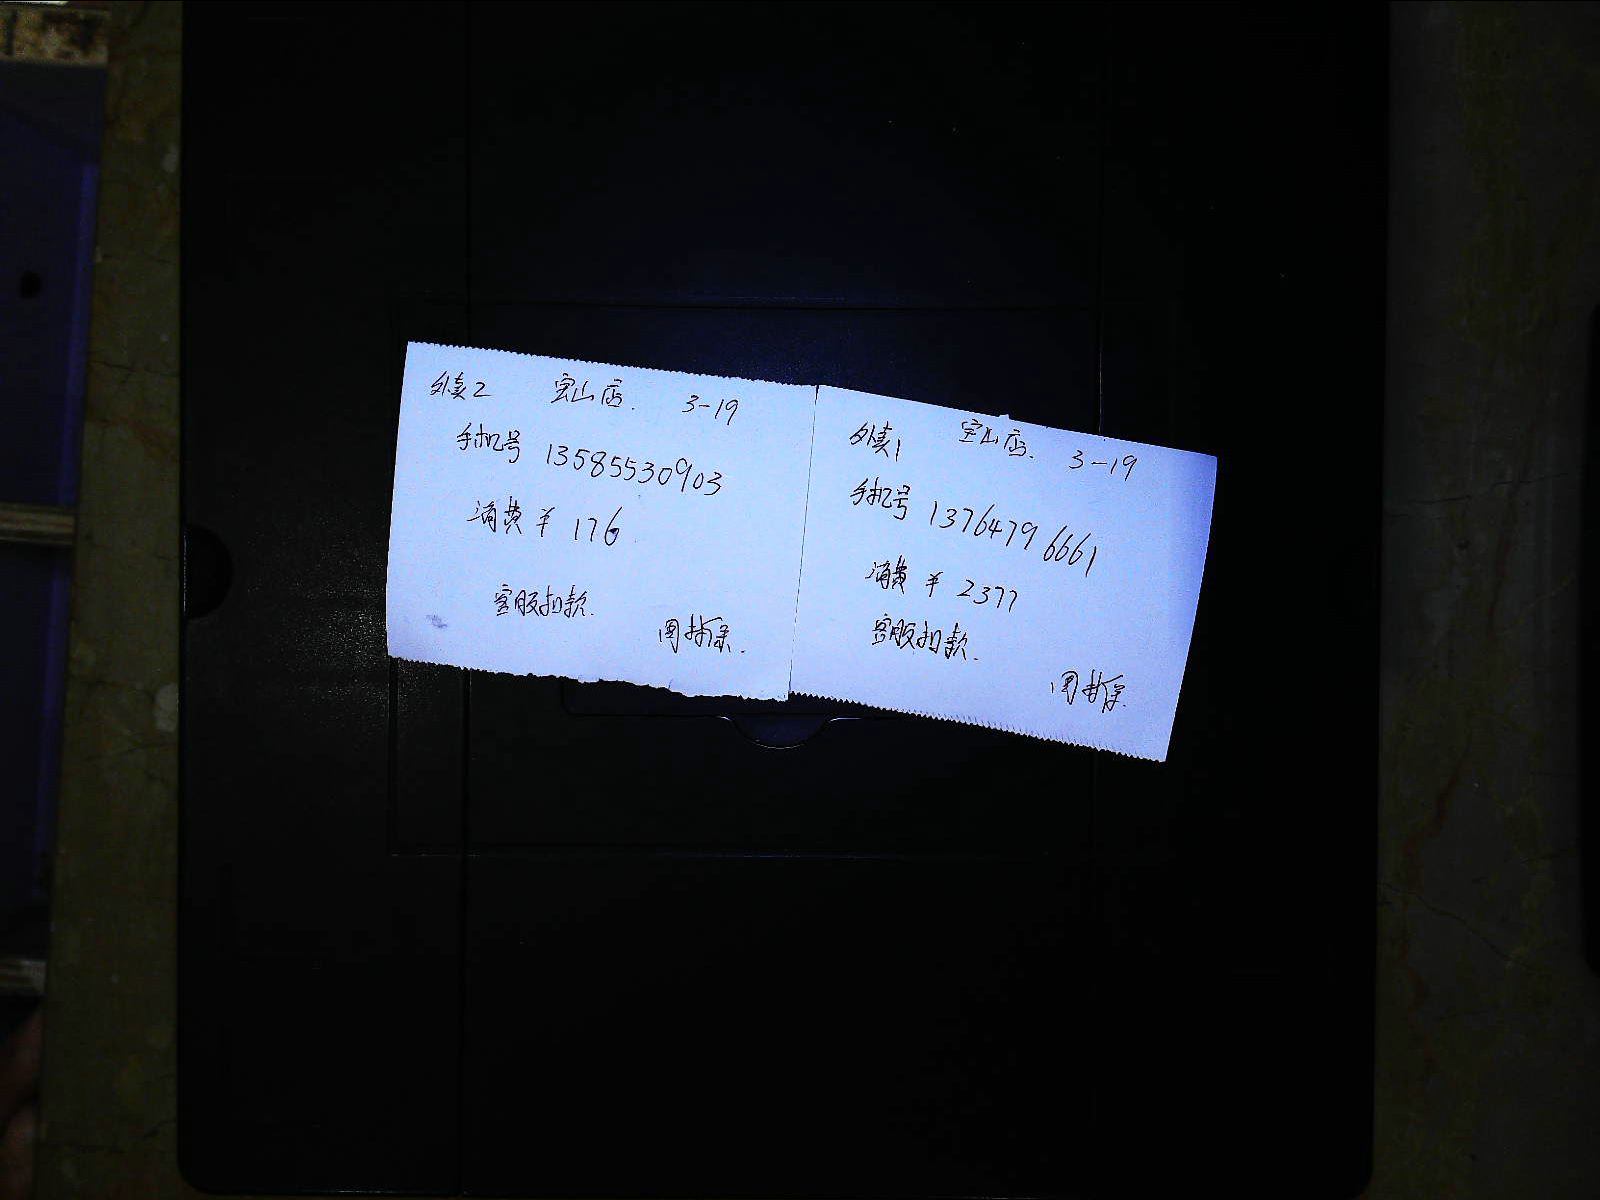 外卖2 宝山店. 3-19
手机号 13585530903
消费 ¥ 176
客服扣款.
外卖1 宝山店. 3-19
手机号 13764796661
消费 ¥ 2377
客服扣款.